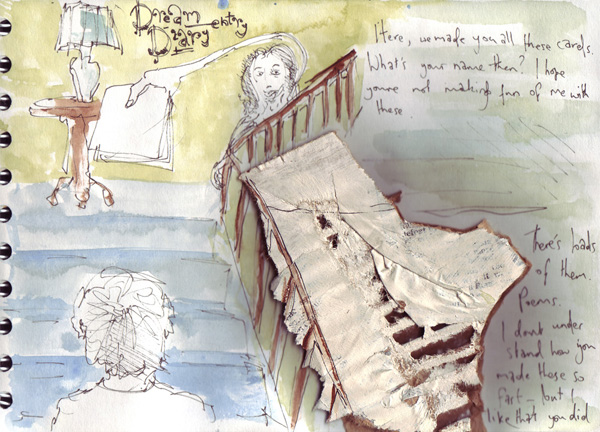 Dream
Diary entry
Here, we made you all these cards.
What's your name then? I hope
youre not making fun of me with
these.
There's loads
of them.
Poems.
I dont under
stand how you
made these so
fast - but I
like that you did